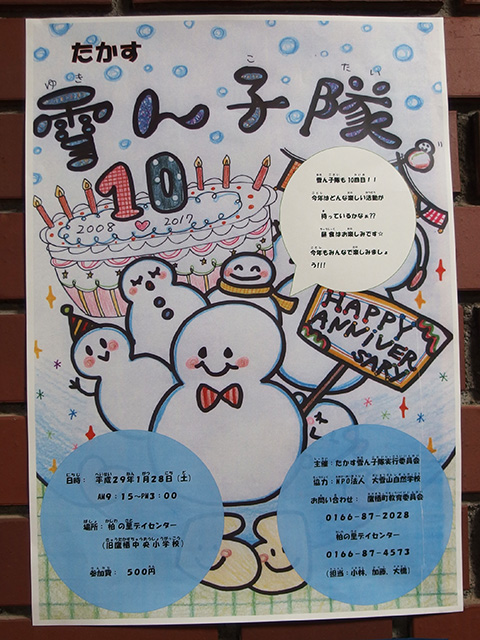 たかす
ゆき こ たい
雪ん子隊
10
2008 ♥ 2017
雪ん子隊も10回目!!
今年はどんな楽しい活動が
待っているかなぁ??
昼食はお楽しみです☆
今年もみんなで楽しみましょ
う!!!
HAPPY
ANNIVER
SARY
日時: 平成29年1月28日(土)
AM9:15~PM3:00
場所: 柏の里デイセンター
参加費: 500円
主催:たかす雪ん子隊実行委員会
協力:NPO法人 大雪山自然学校
0166-87-2028
柏の里デイセンター
0166-87-4573
(担当:小林、加藤、大橋)